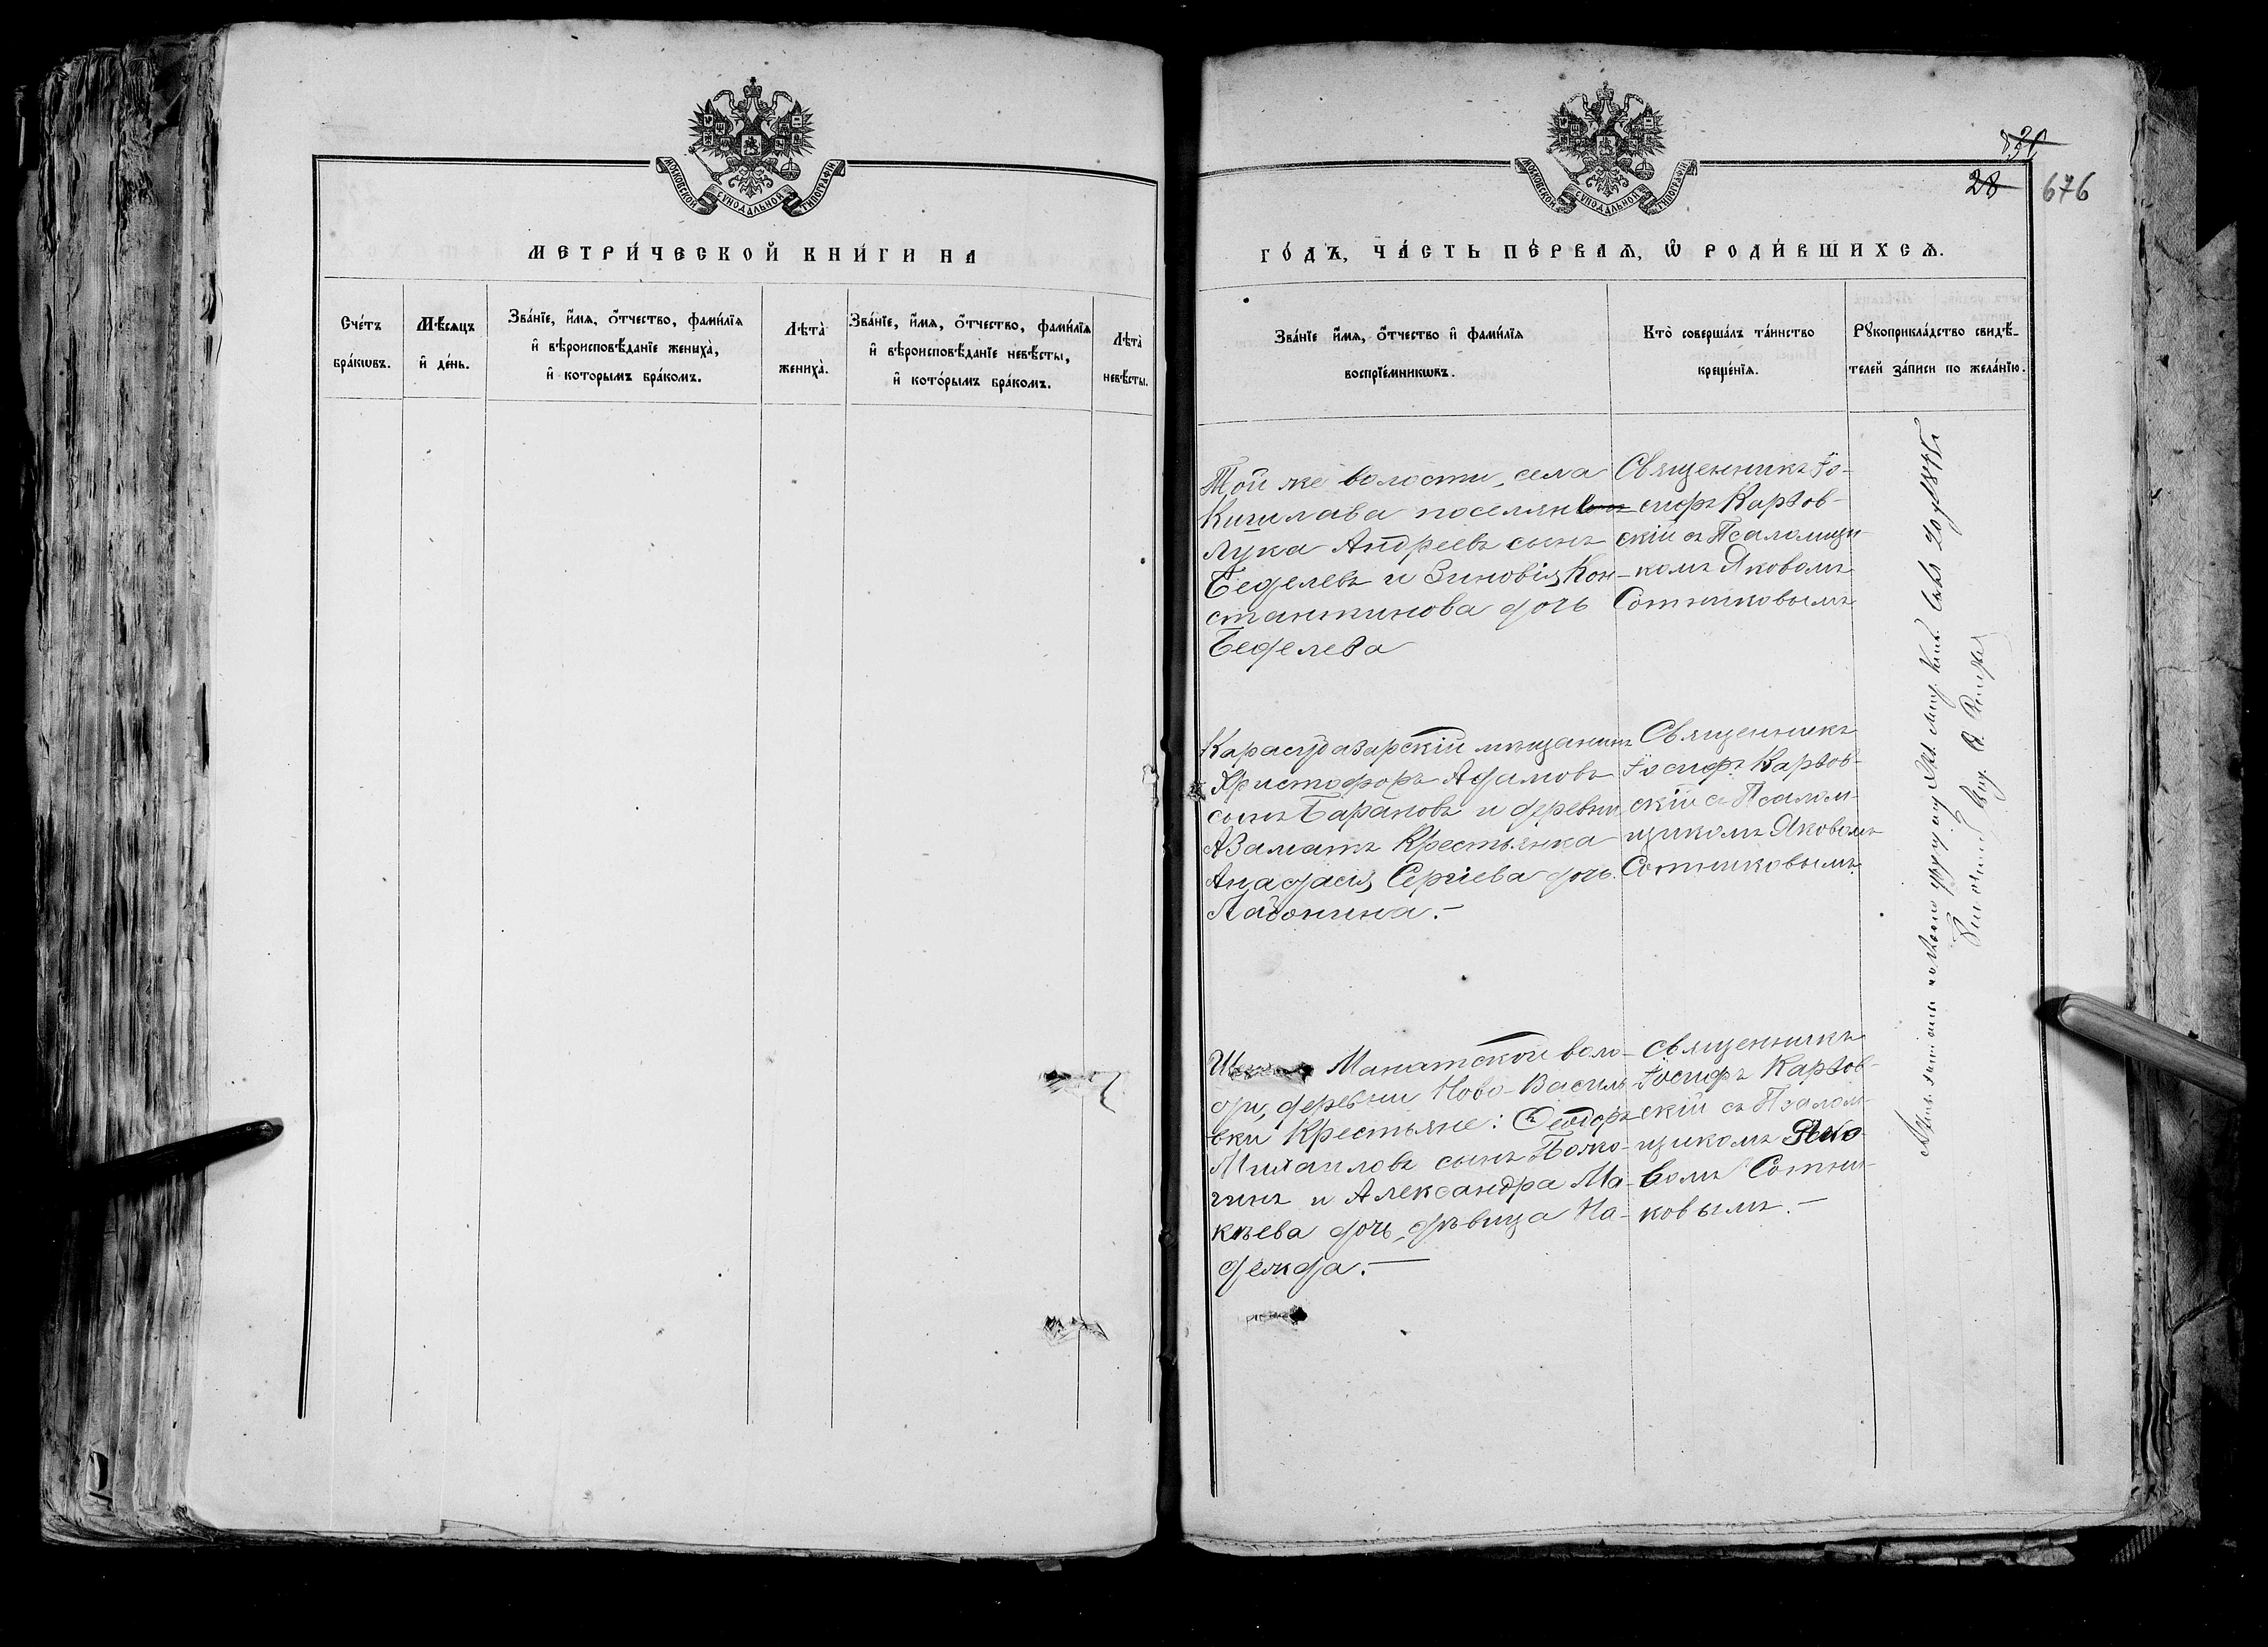 МОСКОВСКОЙ СѴНОДАЛЬНОЙ ТИПОГРАФІИ
МЕТРИ́ЧЕСКОЙ КНИ́ГИ НА
Сче́тъ бра́кωвъ.
Мѣ́сяцъ и҆ де́нь.
Зва́нїе, и҆́мѧ, ѻ҆́тчество, фамѝлїѧ
и҆ вѣроисповѣ́данїе жениха̀,
и҆ которымъ бра́комъ.
Лѣта̀ жениха̀.
Зва́нїе, и҆́мѧ, ѻ҆́тчество, фамѝлїѧ
и҆ вѣроисповѣ́данїе невѣ́сты,
и҆ кото́рымъ бра́комъ.
Лѣта̀ невѣ́сты.
МОСКОВСКОЙ СѴНОДАЛЬНОЙ ТИПОГРАФІИ
28 676
ГО́ДЪ, ЧА́СТЬ ПЕ́РВАѦ, Ѡ҆ РОДИ́ВШИХСѦ.
Зва́нїе и҆́мѧ, ѻ҆́тчество и҆ фамѝлїѧ
воспрїе́мникωвъ.
Кто̀ соверша́лъ та́инство
креще́нїѧ.
Рꙋкоприкла́дство свидѣ́-
телей за́писи по жела́нїю.
Той же волости, села
Кишлава поселяне
Лука Андреевъ сынъ
Беделевъ и Зиновія Кон-
стантинова дочь
Беделева
Священникъ Іо-
сифъ Карзов-
скій съ Псаломщи-
комъ Яковомъ
Сотниковымъ
Карасубазарскій мѣщанинъ
Христофоръ Адамовъ
сынъ Барановъ и деревни
Азаматъ Крестьянка
Анастасія Сергіева дочь
Ладонина.—
Священникъ
Іосифъ Карзов-
скій съ Псалом-
щикомъ Яковомъ
Сотниковымъ.
Манатской воло-
сти, деревни Ново-Василь-
евки Крестьяне: Ѳеодоръ
Михаиловъ сынъ
и Александра Ма-
кѣева дочь, дѣвица На-
дежда.—
Священникъ
Іосифъ Карзов-
скій съ Псалом-
щикомъ Яко-
вомъ Сотни-
ковымъ.—